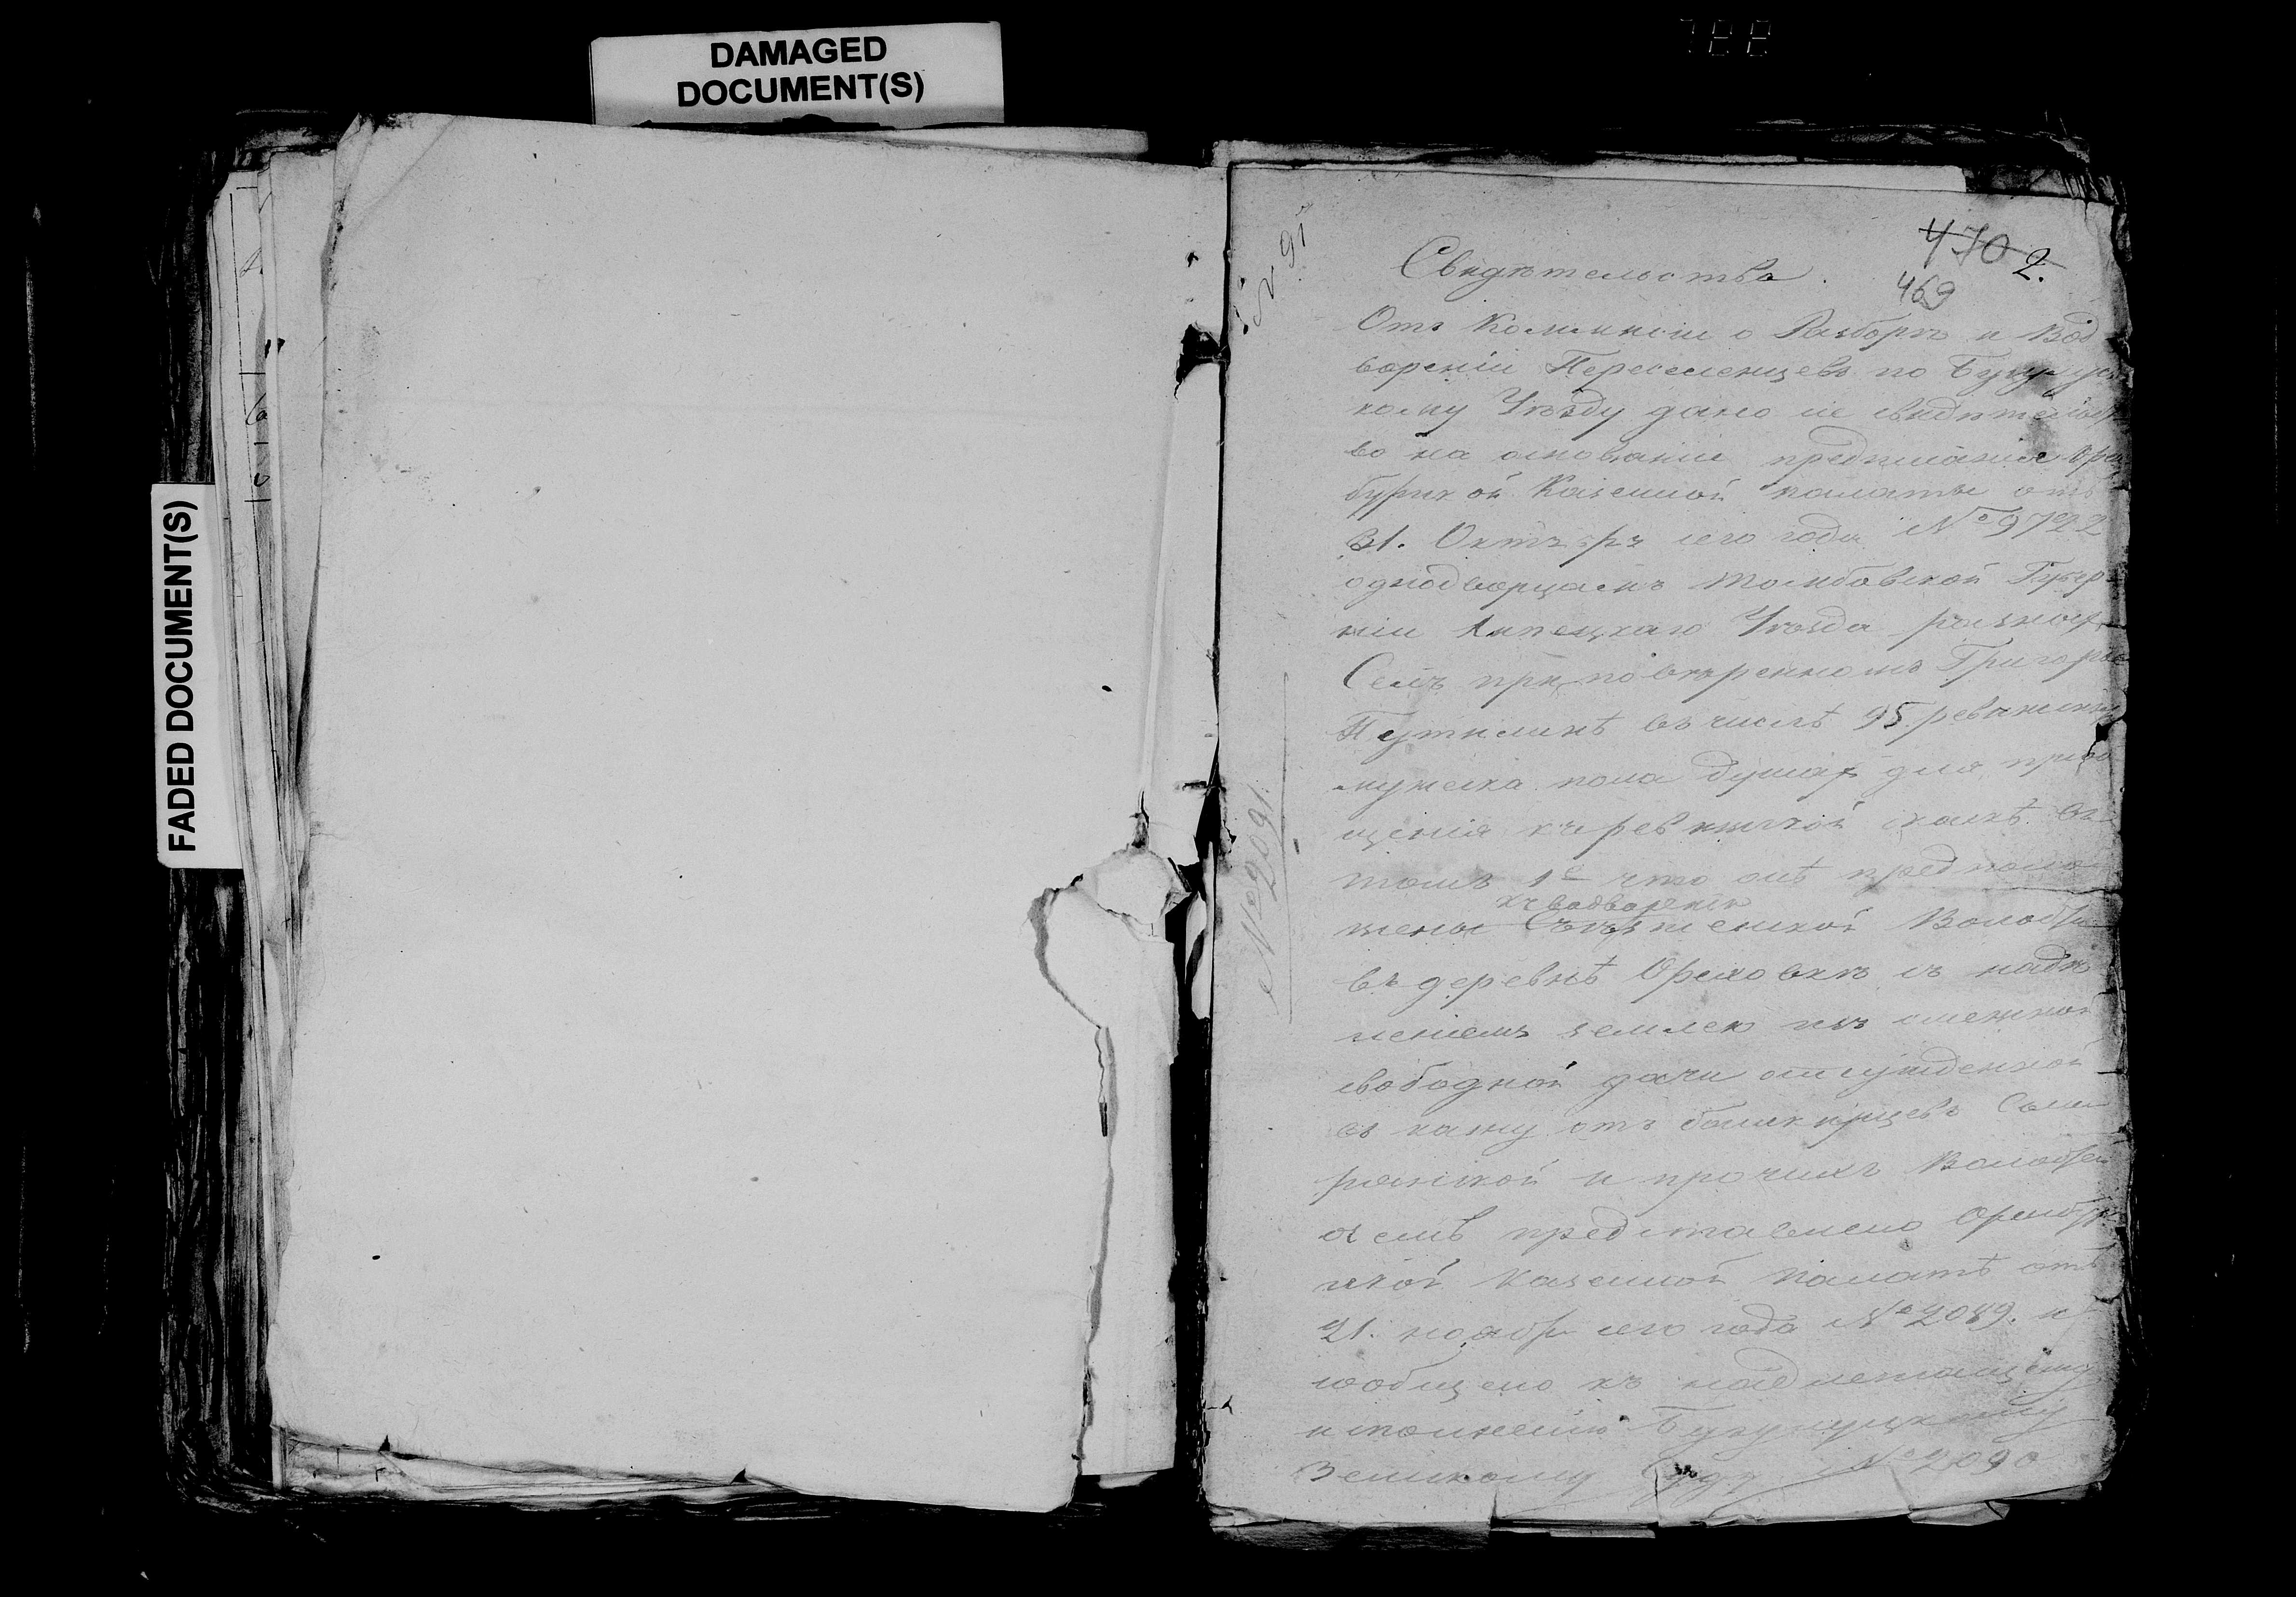 DAMAGED
DOCUMENT(S)
FADED DOCUMENT(S)
№ 91
470 2.
469
Свидѣтельство.
Отъ Коммисіи о Разборѣ и Вод
вореніи Переселенцевъ по Бугурус
кому Уѣзду дано сіе свидѣтельст
во на основаніи предписанія Орен
бургской Казенной палаты отъ
31. Октября сего года № 9722
однодворцамъ Тамбовской Губер
ніи Липецкаго Уѣзда разных
Селъ при повѣренномъ Григорье
Путилинѣ въ числѣ 95. ревижских
мужеска пола душах для приоб
щенія къ ревижской сказкѣ въ
томъ 1е что онѣ предполо
къ водворенію
жены Съезженской Волости
въ деревнѣ Ореховкѣ съ надѣ
леніемъ землею изъ смежной
свободной дачи отсужденной
въ казну отъ башкирцевъ
и прочихъ Волостей
о чемъ представлено Оренбург
ской Казенной Палатѣ отъ
21. ноября сего года № 2089. и
сообщено къ надлежащему
исполненію
Земскому Суду № 2090
№ 2091.